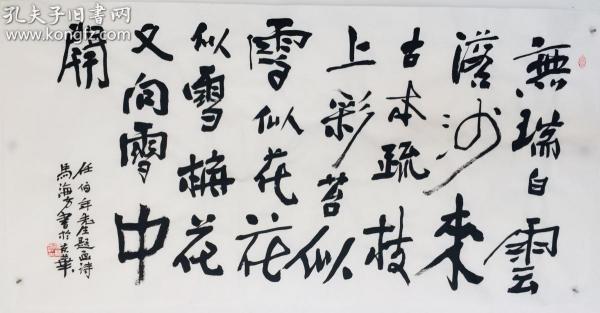 孔夫子旧书网
BOOK.KONGFZ.COM
無瑞自雲
落沙来
古本疏枝
上彩苔似
雪似花花
似雪梅花
又向雪中
開
任伯年先生题画诗
馬海方書於京華